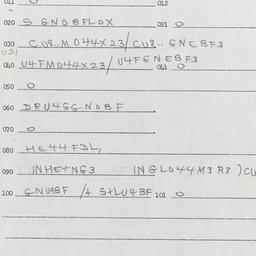 011 O 012
020 S GNOBFLOX 021 O
030 CU8..M044X23/CU8..GNEBF3
031
040 U4FM044X23/U4FGNEBF3
041 O
050 O
060 DRU4GGNOBF
070 O
080 HE44FDL,
090 INHE+NG3 INGL044M3R3)CU
100 GNU4BF /+ S+LU4BF 101 O